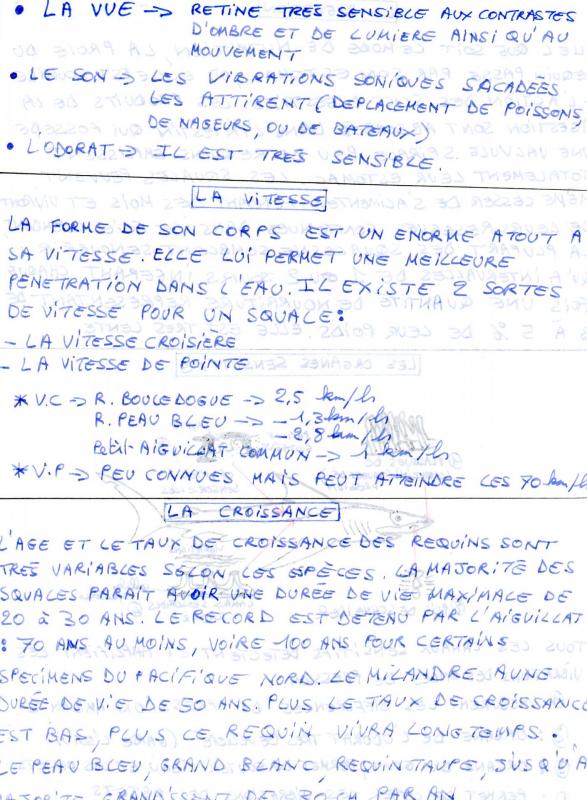 • LA VUE → RETINE TRES SENSIBLE AUX CONTRASTES
D'OMBRE ET DE LUMIERE AINSI QU'AU
MOUVEMENT
• LE SON → LES VIBRATIONS SONIQUES SACADEES
LES ATTIRENT (DEPLACEMENT DE POISSONS,
DE NAGEURS, OU DE BATEAUX)
• L'ODORAT → IL EST TRES SENSIBLE.
LA VITESSE
LA FORME DE SON CORPS EST UN ENORME ATOUT A
SA VITESSE. ELLE LUI PERMET UNE MEILLEURE
PENETRATION DANS L'EAU. IL EXISTE 2 SORTES
DE VITESSE POUR UN SQUALE :
- LA VITESSE CROISIERE
- LA VITESSE DE POINTE
* V.C → R. BOULEDOGUE → 2,5 km/h
R. PEAU BLEU → - 1,3 km/h
- 2,8 km/h
Petit AIGUILLAT COMMUN → 1 km/h
* V.P → PEU CONNUES MAIS PEUT ATTEINDRE LES 70 km/h
LA CROISSANCE
L'AGE ET LE TAUX DE CROISSANCE DES REQUINS SONT
TRES VARIABLES SELON LES ESPÈCES. LA MAJORITE DES
SQUALES PARAIT AVOIR UNE DURÉE DE VIE MAXIMALE DE
20 à 30 ANS. LE RECORD EST DETENU PAR L'AIGUILLAT
: 70 ANS AU MOINS, VOIRE 100 ANS POUR CERTAINS
SPECIMENS DU PACIFIQUE NORD. LE MILANDRE A UNE
DURÉE DE VIE DE 50 ANS. PLUS LE TAUX DE CROISSANCE
EST BAS PLUS CE REQUIN VIVRA LONGTEMPS.
LE PEAU BLEU, GRAND BLANC, REQUIN TAUPE, JUSQU'A
MAJORITE GRANDISSENT DE 30 CM PAR AN